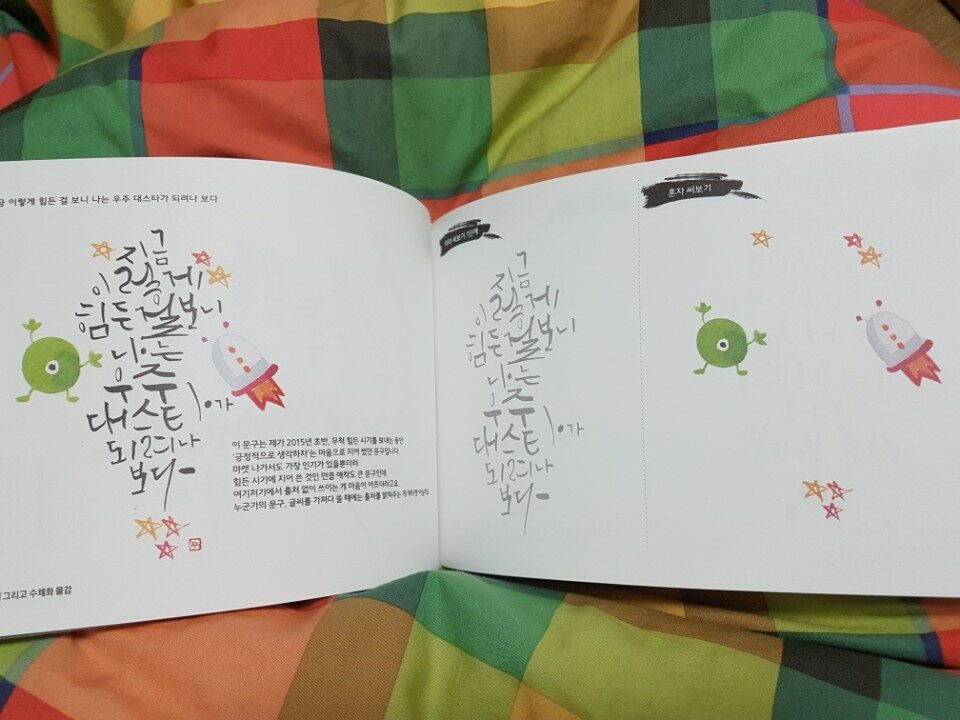 금 이렇게 힘든 걸 보니 나는 우주 대스타가 되려나 보다
지금
이렇게
힘든 걸 보니
나는
우주
대스타가
되려나
보다
이 문구는 제가 2015년 초반, 무척 힘든 시기를 보내는 동안
'긍정적으로 생각하자'는 마음으로 지어 썼던 문구입니다.
마켓 나가서도 가장 인기가 있을뿐더러
힘든 시기에 지어 쓴 것인 만큼 애착도 큰 문구인데
여기저기에서 출처 없이 쓰이는 게 마음이 아프더라고요.
누군가의 문구, 글씨를 가져다 쓸 때에는 출처를 밝혀주는 게
그리고 수채화 물감
따라 써보기 1단계
지금
이렇게
힘든 걸 보니
나는
우주
대스타가
되려나
보다
혼자 써보기